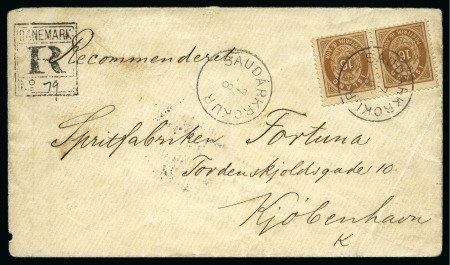 DANEMARK
R
No 79
Recommenderet
SAUDÁRKRÓKUR
7
8
16
16
Spritfabriken Fortuna
Tordenskjoldsgade 10
Kjöbenhavn
K